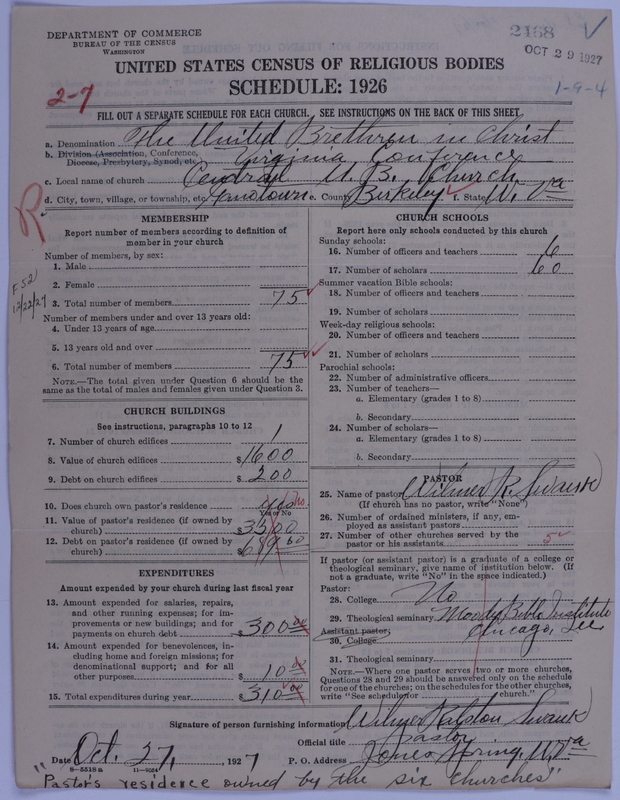 DEPARTMENT OF COMMERCE
BUREAU OF THE CENSUS
WASHINGTON
2168
OCT 29 1927
1-9-4
2-7
UNITED STATES CENSUS OF RELIGIOUS BODIES
SCHEDULE: 1926
FILL OUT A SEPARATE SCHEDULE FOR EACH CHURCH. SEE INSTRUCTIONS ON THE BACK OF THIS SHEET
a. Denomination The United Brethren in Christ
b. Division (Association, Conference, Diocese, Presbytery, Synod, etc. Virginia Conference
c. Local name of church Central U.B. Church
d. City, town, village, or township, etc. e. County Berkeley f. State W. Va
R
F. S2)
12/22/27
MEMBERSHIP
Report number of members according to definition of
member in your church
Number of members, by sex:
1. Male
2. Female
3. Total number of members 75
Number of members under and over 13 years old:
4. Under 13 years of age
5. 13 years old and over
6. Total number of members 75
NOTE.—The total given under Question 6 should be the
same as the total of males and females given under Question 3.
CHURCH BUILDINGS
See instructions, paragraphs 10 to 12
7. Number of church edifices 1
8. Value of church edifices $1600
9. Debt on church edifices $200
10. Does church own pastor's residence yes no
Yes or No
11. Value of pastor's residence (if owned by
church) $3500
12. Debt on pastor's residence (if owned by
church) $689.60
EXPENDITURES
Amount expended by your church during last fiscal year
13. Amount expended for salaries, repairs,
and other running expenses; for im-
provements or new buildings; and for
payments on church debt $300.00
14. Amount expended for benevolences, in-
cluding home and foreign missions; for
denominational support; and for all
other purposes $10.00
15. Total expenditures during year $310.00
CHURCH SCHOOLS
Report here only schools conducted by this church
Sunday schools:
16. Number of officers and teachers 6
17. Number of scholars 60
Summer vacation Bible schools:
18. Number of officers and teachers
19. Number of scholars
Week-day religious schools:
20. Number of officers and teachers
21. Number of scholars
Parochial schools:
22. Number of administrative officers
23. Number of teachers—
a. Elementary (grades 1 to 8)
b. Secondary
24. Number of scholars—
a. Elementary (grades 1 to 8)
b. Secondary
PASTOR
25. Name of pastor Wilmer R. Swank
(If church has no pastor, write "None")
26. Number of ordained ministers, if any, em-
ployed as assistant pastors
27. Number of other churches served by the
pastor or his assistants 5
If pastor (or assistant pastor) is a graduate of a college or
theological seminary, give name of institution below. (If
not a graduate, write "No" in the space indicated.)
Pastor:
28. College No
29. Theological seminary Moody Bible Institute
Assistant pastor: Chicago, Ill
30. College
31. Theological seminary
NOTE.—Where one pastor serves two or more churches,
Questions 28 and 29 should be answered only on the schedule
for one of the churches; on the schedules for the other churches,
write "See schedule for church."
Signature of person furnishing information Wilmer Ralston Swank
Official title Pastor
Date Oct. 27, 1927 P. O. Address Jones Spring, W. Va
8-5518 a 11-9054
"Pastor's residence owned by the six churches"